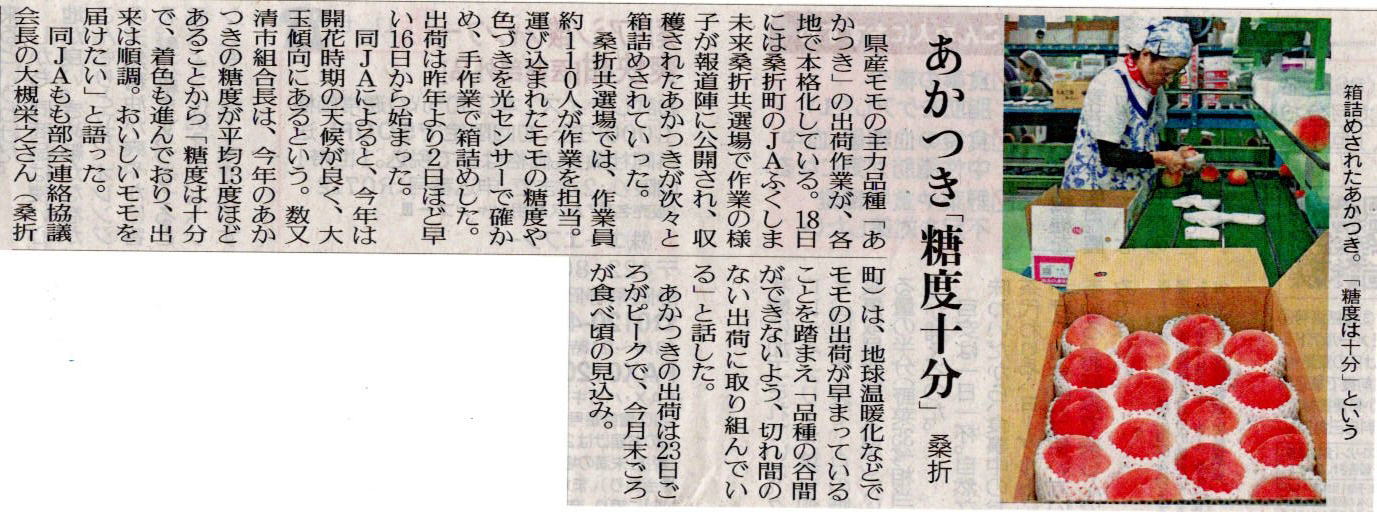 箱詰めされたあかつき。「糖度は十分」という
あかつき「糖度十分」 桑折
県産モモの主力品種「あ
かつき」の出荷作業が、各
地で本格化している。18日
には桑折町のJAふくしま
未来桑折共選場で作業の様
子が報道陣に公開され、収
穫されたあかつきが次々と
箱詰めされていった。
桑折共選場では、作業員
約110人が作業を担当。
運び込まれたモモの糖度や
色づきを光センサーで確か
め、手作業で箱詰めした。
出荷は昨年より2日ほど早
い16日から始まった。
同JAによると、今年は
開花時期の天候が良く、大
玉傾向にあるという。数又
清市組合長は、今年のあか
つきの糖度が平均13度ほど
あることから「糖度は十分
で、着色も進んでおり、出
来は順調。おいしいモモを
届けたい」と語った。
同JAもも部会連絡協議
会長の大槻栄之さん（桑折
町）は、地球温暖化などで
モモの出荷が早まっている
ことを踏まえ「品種の谷間
ができないよう、切れ間の
ない出荷に取り組んでい
る」と話した。
あかつきの出荷は23日ご
ろがピークで、今月末ごろ
が食べ頃の見込み。